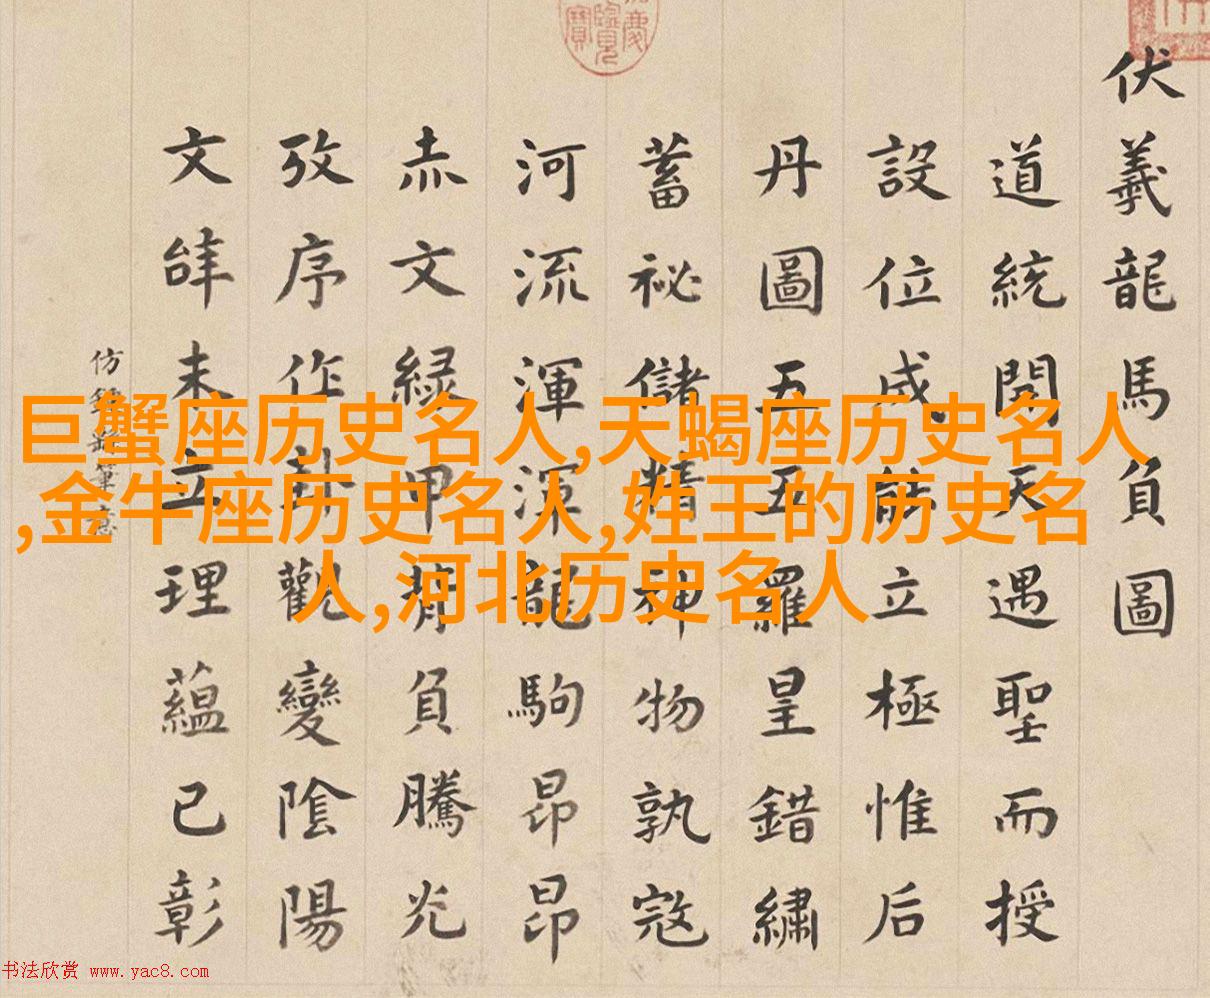 伏羲龍馬負圖
道統開天遇聖而授
設位成能立極惟后
丹圖五五羅皇錯繡
蓄祕儲精神物孰寇
河流渾渾龍駒昂昂
赤文緑甲背負騰光
攷序作卦觀變陰陽
文辝未立理蘊已彰
仿
慶覽寶
巨蟹座历史名人,天蝎座历史名人
,金牛座历史名人,姓王的历史名
人,河北历史名人
书法欣赏 www.yac8.com